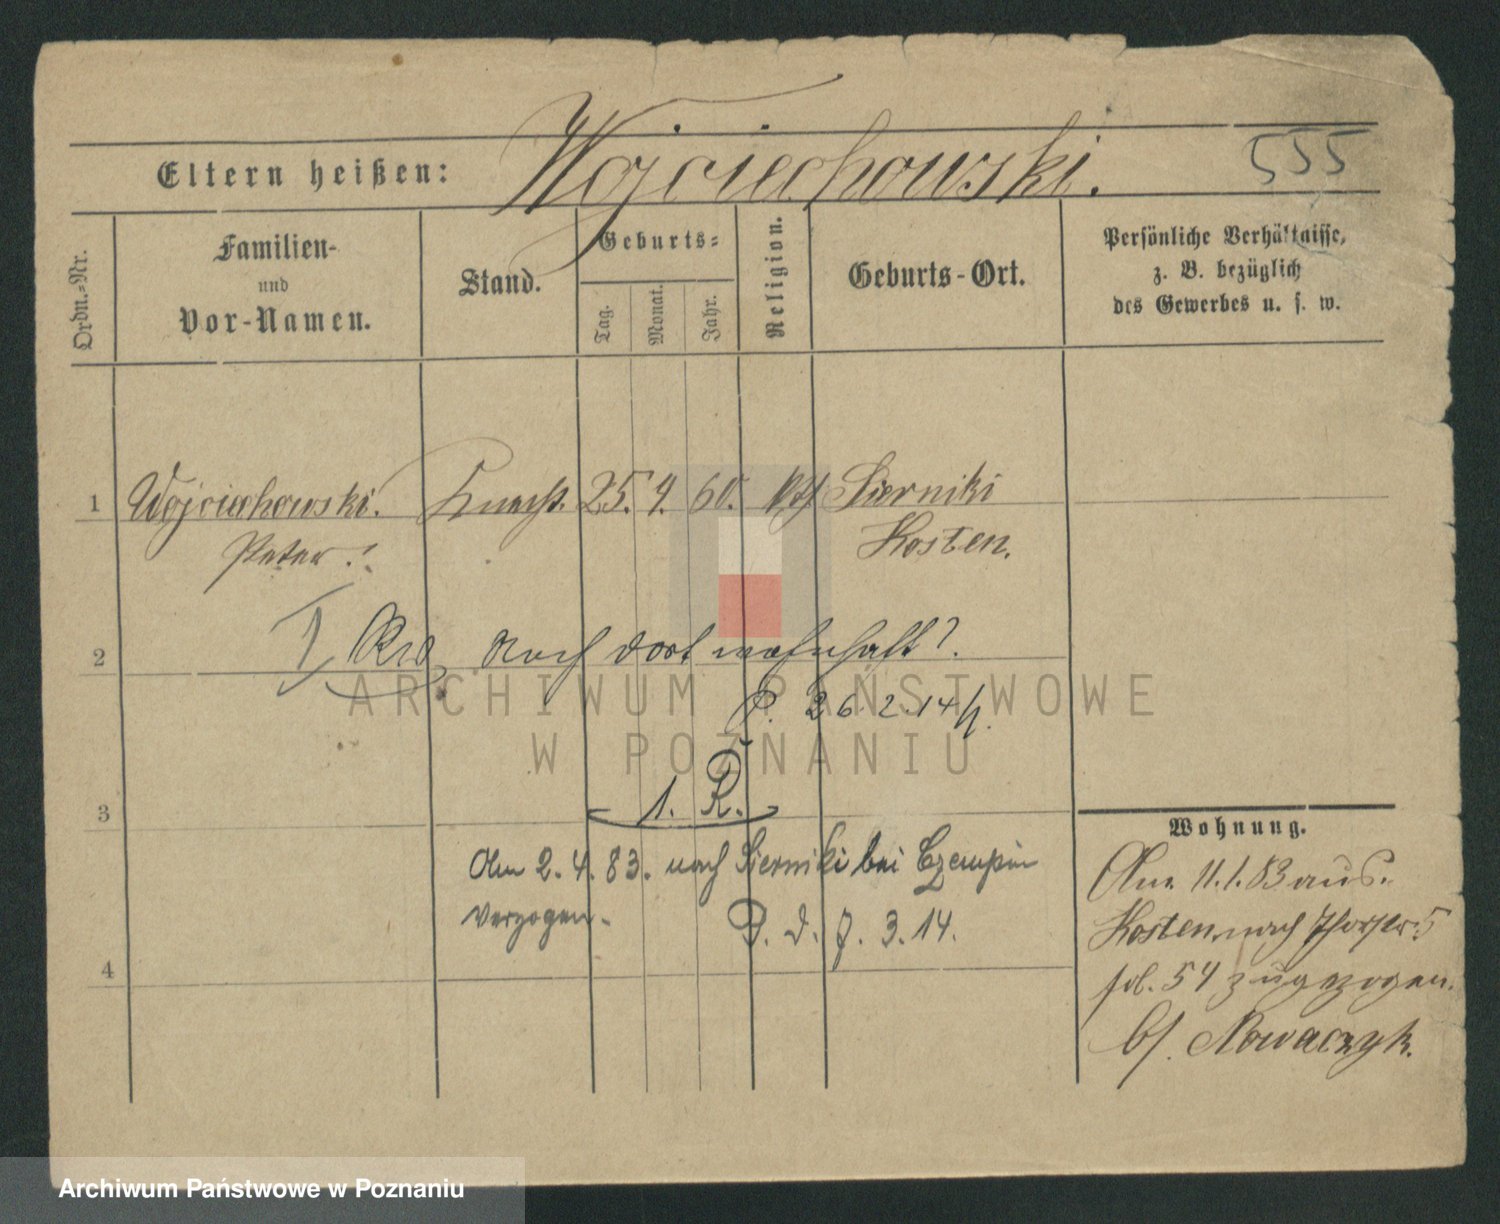 Eltern heißen: Wojciechowski. 555
Ordn.-Nr.
Familien-
und
Vor-Namen.
Stand.
Geburts-
Tag.
Monat.
Jahr.
Religion.
Geburts-Ort.
Persönliche Verhältnisse,
z. B. bezüglich
des Gewerbes u. s. w.
1 Wojciechowski. Knecht. 25. 4. 60. kth Sierniki
Peter. Kosten.
2 noch dort wohnhaft?
P. 26. 2. 14
3 1. R.
Wohnung.
Am 2. 4. 83. nach Sierniki bei Czempin
verzogen. P. d. 7. 3. 14.
4
Am 11.1.83 aus
Kosten nach 5
54 zugezogen.
b/ Nowaczyk.
ARCHIWUM PAŃSTWOWE
W POZNANIU
Archiwum Państwowe w Poznaniu